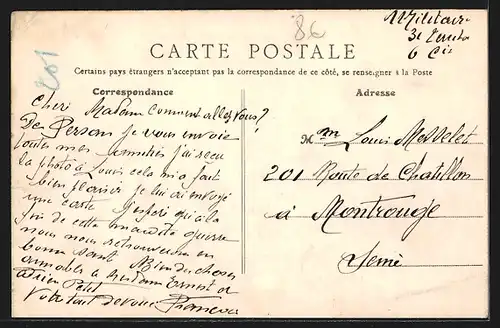 86
Militaire
3e
6 Cie
201
CARTE POSTALE
Certains pays étrangers n'acceptant pas la correspondance de ce côté, se renseigner à la Poste
Correspondance
Adresse
Cheri Madam comment allez vous?
De Persan je vous envoie
toutes mes amitiés j'ai recu
la photo à Louis cela m'a fait
bien plaisir je lui ai envoyé
une carte j'esperé qu'a la
fin de cette maudite guerre
nous nous retrouverons en
bonne santé Bien des choses
aimables a Madam Ernest et
adieu Petit
Votre tout devoué Francois
Mme Louis Messelet
201 Route de Chatillon
à Montrouge
Seine